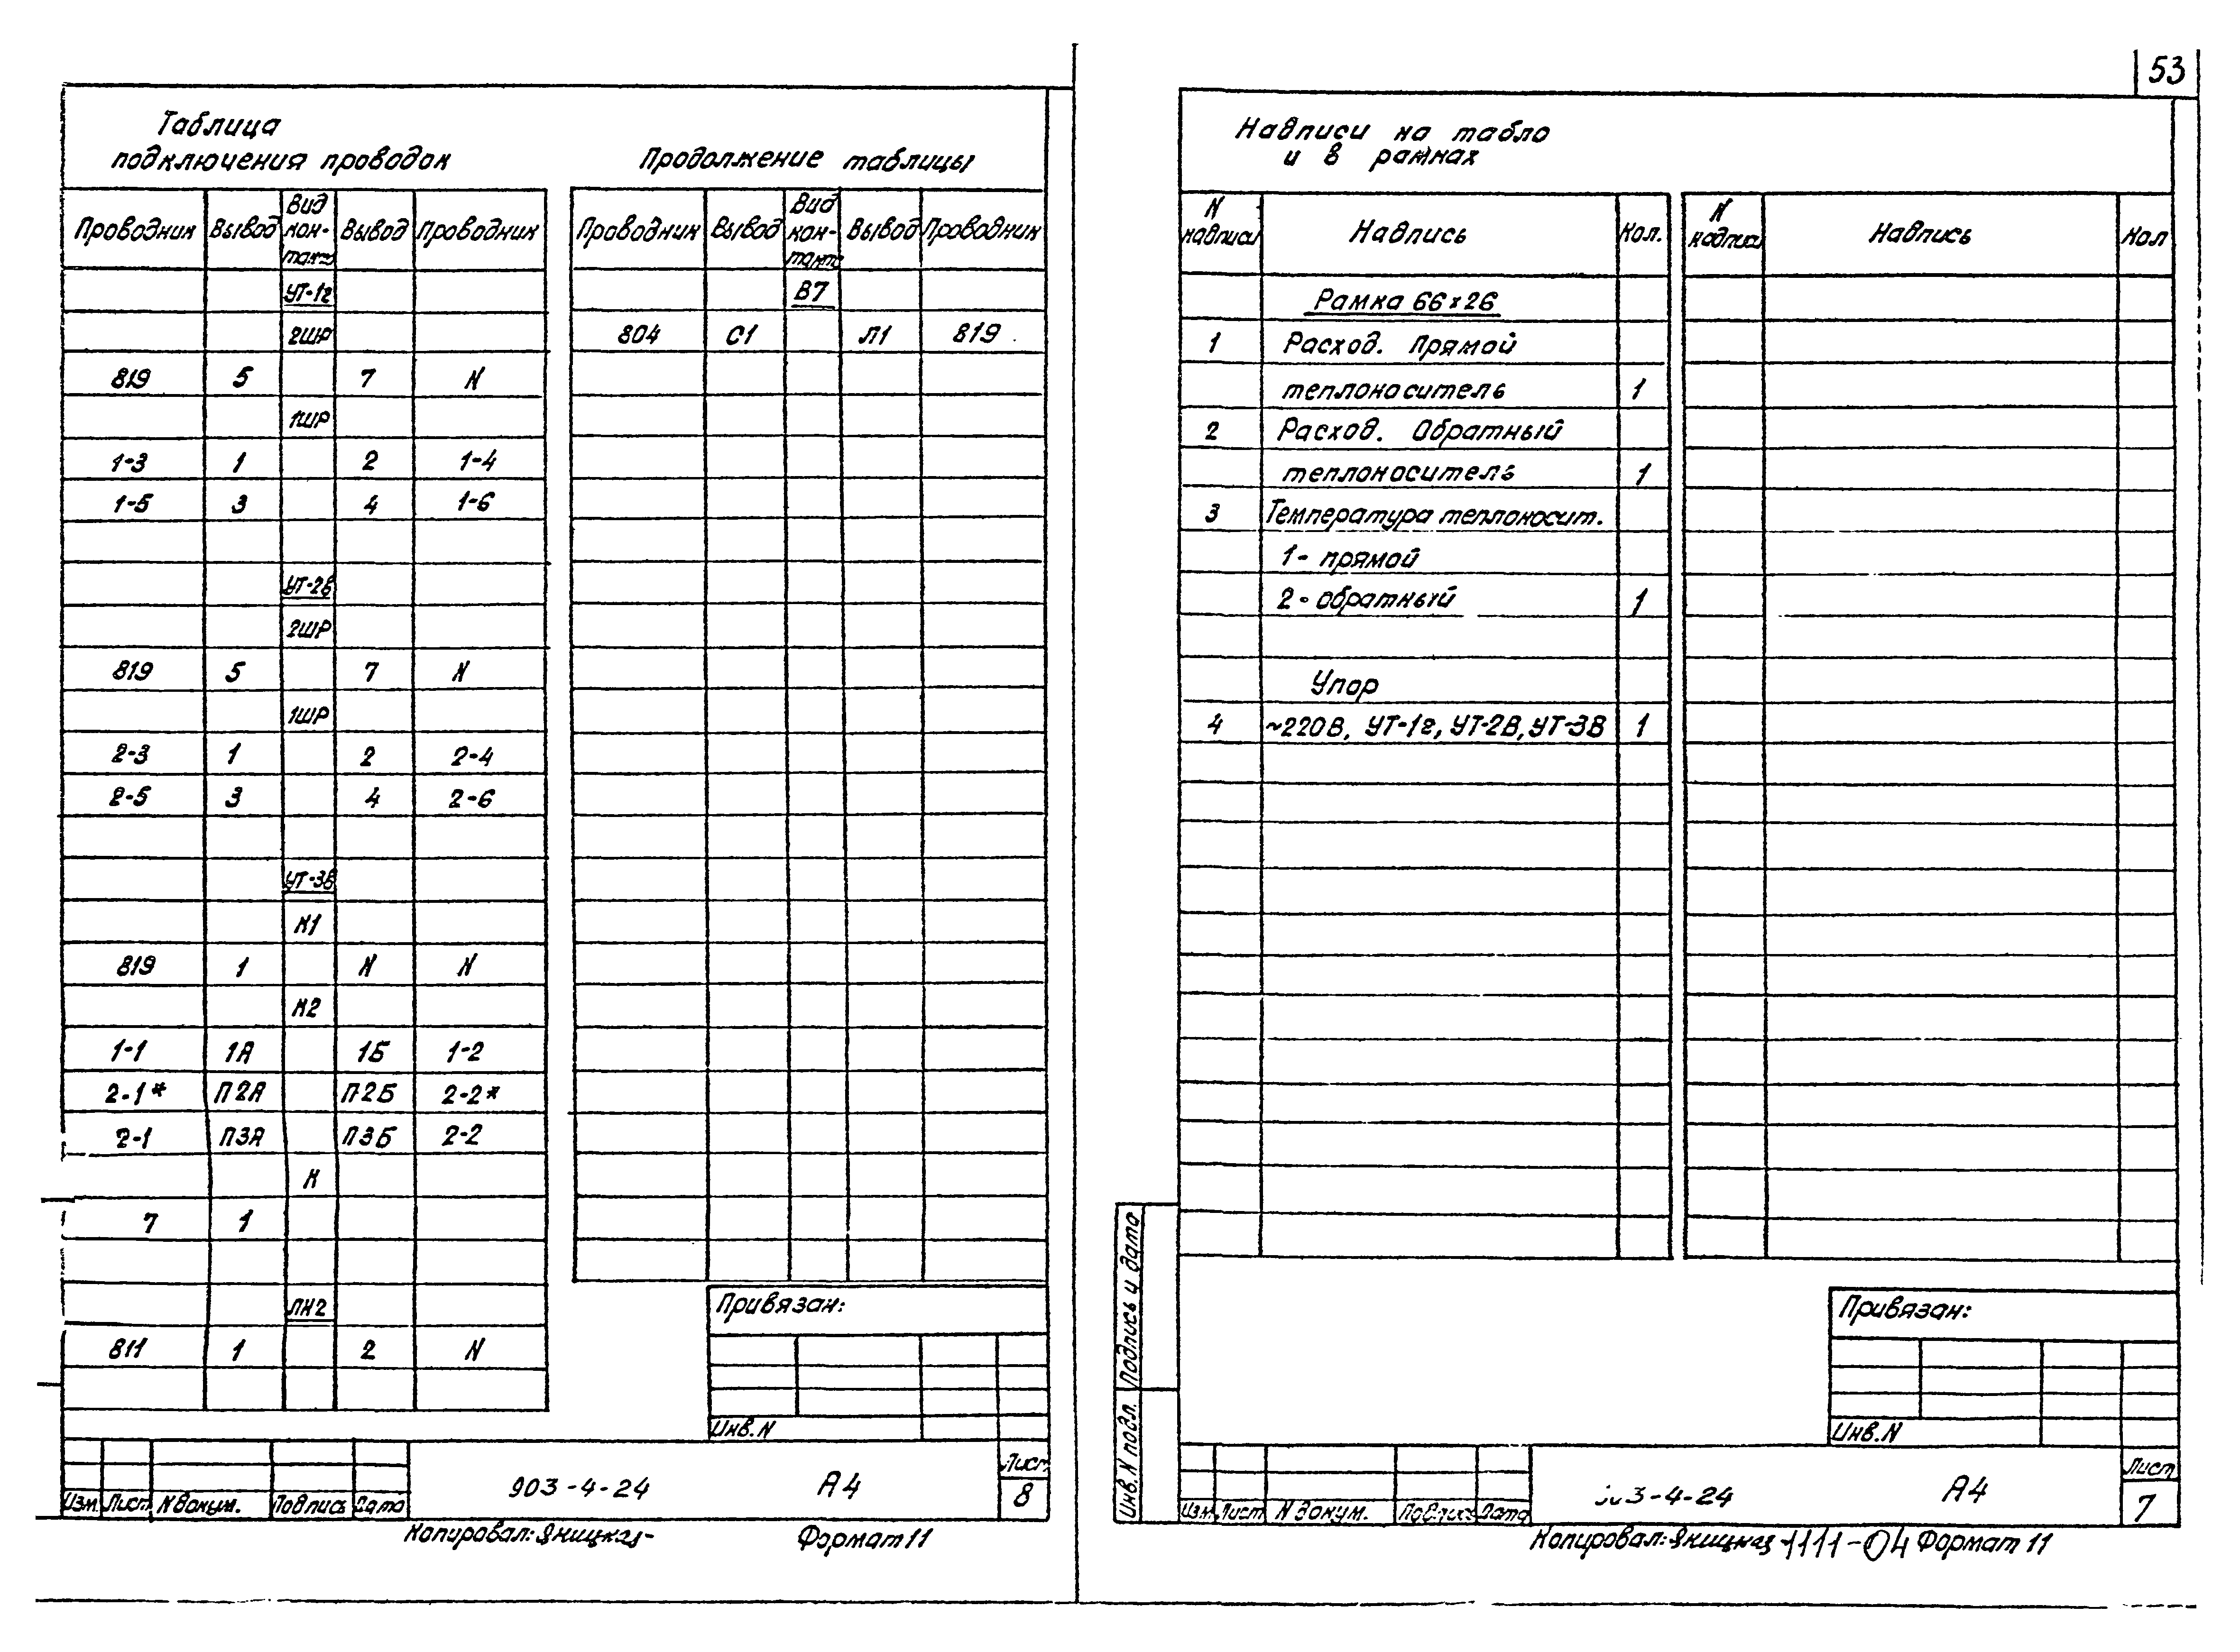 53
Таблица
подключения проводок
Продолжение таблицы
Проводник Вывод Вид кон-такта Вывод Проводник
УТ-1г
2ШР
819 5 7 N
1ШР
1-3 1 2 1-4
1-5 3 4 1-6
УТ-2в
2ШР
819 5 7 N
1ШР
2-3 1 2 2-4
2-5 3 4 2-6
УТ-3в
К1
819 1 N N
К2
1-1 1А 1Б 1-2
2-1* П2А П2Б 2-2*
2-1 П3А П3Б 2-2
К
7 1
ЛК2
811 1 2 N
Проводник Вывод Вид кон-такта Вывод Проводник
В7
804 С1 Л1 819
Привязан:
Инв.N
Изм. Лист N докум. Подпись Дата
903-4-24 А4
Лист
8
Копировал: Яницкая
Формат 11
Надписи на табло
и в рамках
N надписи Надпись Кол. N надписи Надпись Кол
Рамка 66х26
1 Расход. Прямой
теплоноситель 1
2 Расход. Обратный
теплоноситель 1
3 Температура теплоносит.
1- прямой
2- обратный 1
Упор
4 ~220В, УТ-1г, УТ-2В, УТ-3В 1
Привязан:
Инв.N
Подпись и дата
Инв.N подл.
Изм Лист N докум. Подпись Дата
3-4-24 А4
Лист
7
Копировал: Яницкая 1111-04 Формат 11